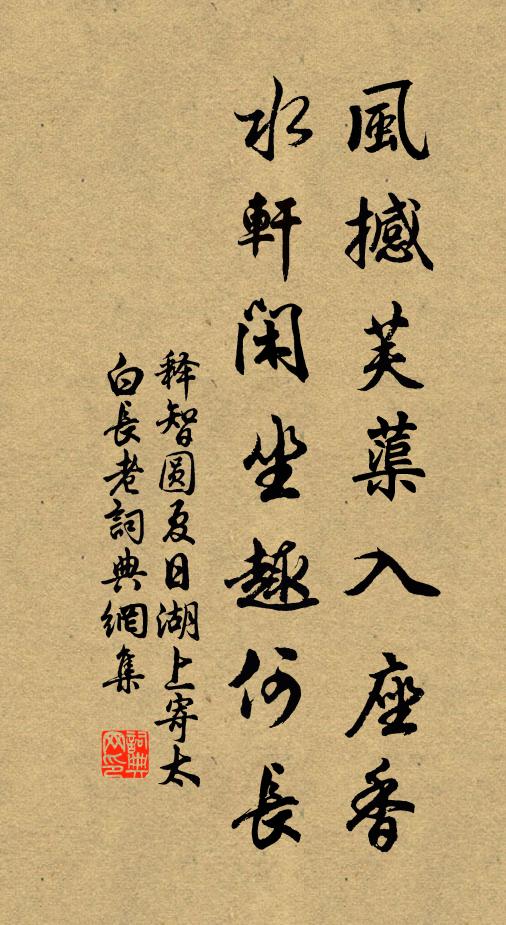 風撼芙蕖入座香
水軒閑坐趣何長
释智圆夏日湖上寄太
白長老詞典網集
詞典
网印